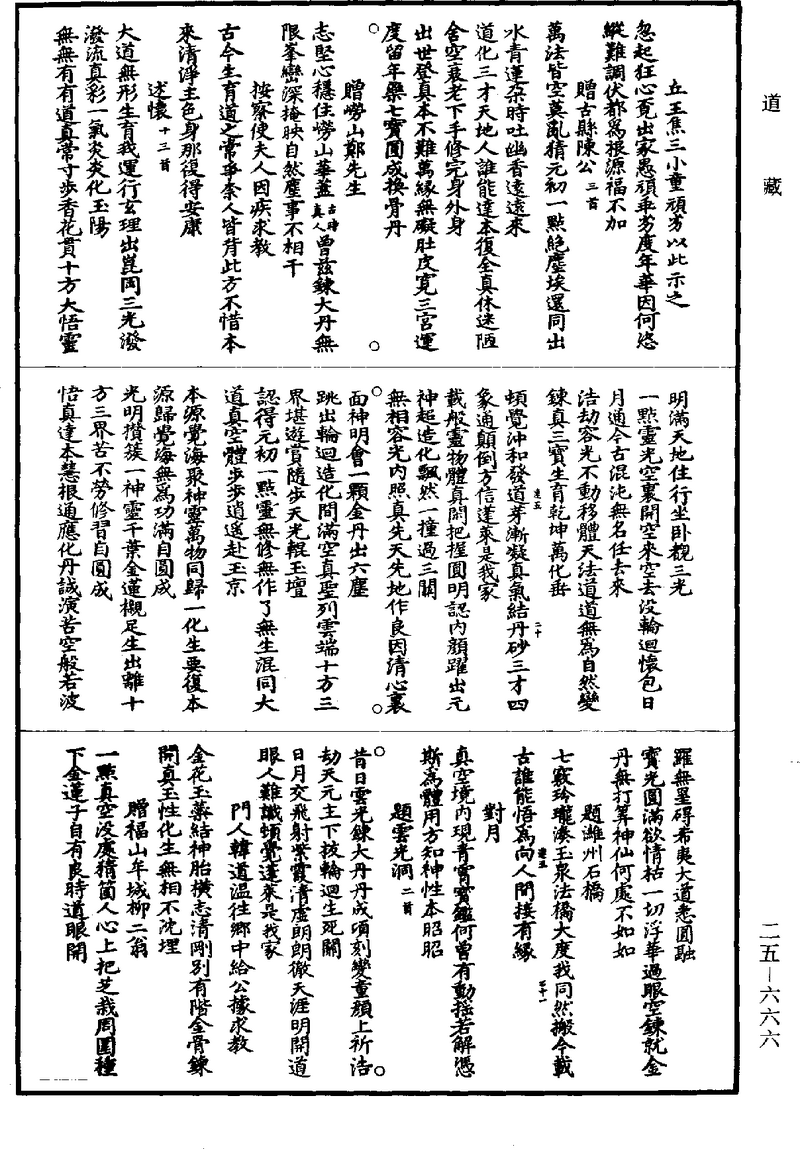 道藏
丘王焦三小童頑劣以此示之
忽起狂心覓出家愚頑乖劣度年華因何恣
縱難調伏都爲根源福不加
贈古縣陳公三首
萬法皆空莫亂猜元初一點絕塵埃還同出
水青蓮朵時吐幽香遠遠來
道化三才天地人誰能達本復全真休迷陋
舍空衰老下手修完身外身
出世登真本不難萬緣無礙肚皮寬三宮運
度留年藥七寶圓成換骨丹
贈嶗山鄭先生
志堅心穩住嶗山華蓋古時真人曾兹鍊大丹無
限峯巒深掩映自然塵事不相干
按察使夫人因疾求教
古今生育道之常爭柰人皆背此方不惜本
來清淨主色身那復得安康
述懷十三首
大道無形生育我運行玄理出崑岡三光潑
潑流真彩一氣炎炎化玉陽
無無有有道真常寸步香花貫十方大悟靈
明滿天地住行坐卧觀三光
一點靈光空裏開空來空去没輪迴懷包日
月通今古混沌無名任去來
浩劫容光不動移體天法道道無爲自然變
鍊真三寶生育乾坤萬化垂
頓覺沖和發道芽漸凝真氣結丹砂三才四
象通顛倒方信蓬萊是我家
載般靈物體真閑把握圓明認内顔躍出元
神超造化飄然一撞過三關
無相容光内照真先天先地作良因清心裏
面神明會一顆金丹出六塵
跳出輪迴造化間滿空真聖列雲端十方三
界堪遊賞隨步天光輥玉壇
認得元初一點靈無修無作了無生混同大
道真空體步步逍遥赴玉京
本源覺海聚神靈萬物同歸一化生要復本
源歸覺海無爲功滿自圓成
光明攢蔟一神靈千葉金蓮襯足生出離十
方三界苦不勞修習自圓成
悟真達本慧根通應化丹誠演苦空般若波
羅無罣碍希夷大道悉圓融
寳光圓滿欲情枯一切浮華過眼空鍊就金
丹無打筭神仙何處不如如
題濰州石橋
七竅玲瓏湊玉泉法橋大度我同然搬今載
古誰能悟爲向人間接有緣
對月
真空境内現青霄寳鑑何曾有動揺若解憑
斯爲體用方知神性本昭昭
題雲光洞二首
昔日雲光鍊大丹丹成頃刻變童顔上祈浩
劫天元主下拔輪迴生死關
日月交飛射紫霞清虛朗朗徹天涯明開道
眼人難識頓覺蓬萊是我家
門人韓道温往鄉中給公據求教
金花玉蘂結神胎横志清剛别有階金骨鍊
開真玉性化生無相不沈埋
贈福山牟城柳二翁
一點真空没處積箇人心上把芝栽周圍種
下金蓮子自有良時道眼開
二五—六六六